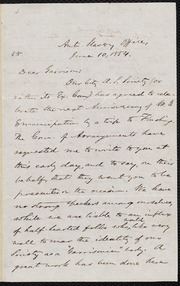 Anti Slavery Office,
June 10, 1854.
Dear Garrison:
Our City A. S. Society (or
rather its Ex. Com.) has agreed to cele-
brate the next Anniversary of W. I.
Emancipation by a trip to Flushing.
The Com. of Arrangements have
requested me to write to you at
this early day, and to say, on this
behalf, that they want you to be
present on the occasion. We have
no strong speakers among ourselves,
while we are liable to an influx
of half hearted folks who
well to mar the identity of our
Society as a "Garrisonian" body. A
great work has been done here